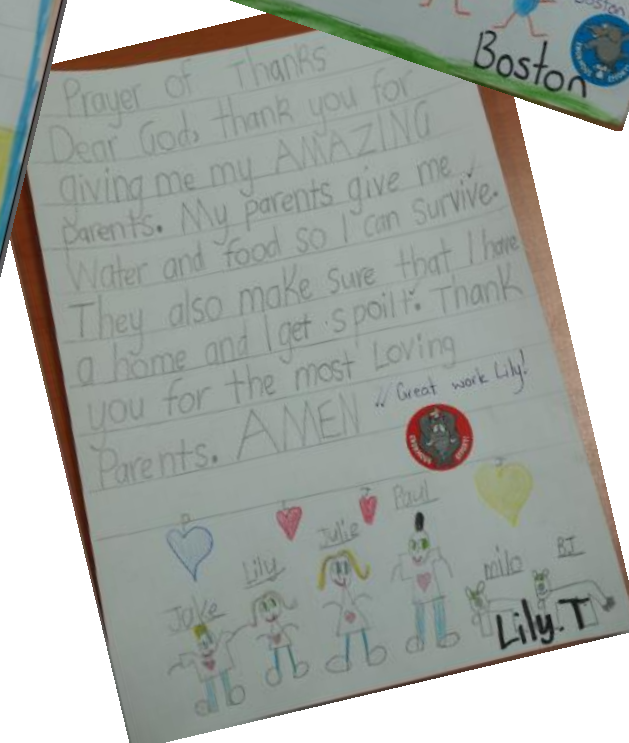 Boston
Boston
Prayer of Thanks
Dear God, thank you for
giving me my AMAZING
parents. My parents give me
Water and food so I can survive.
They also make sure that I have
a home and I get spoilt. Thank
you for the most Loving
Parents. AMEN
Great work Lily!
Paul
Julie
Lily
Jake
milo
BJ
Lily.T